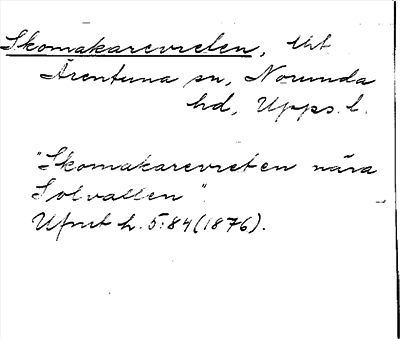 Skomakarevreten, Uht
Ärentuna sn, Norunda
hd, Upps. l.
"Skomakarevreten nära
Solvallen"
Ufmt h. 5:84 (1876).